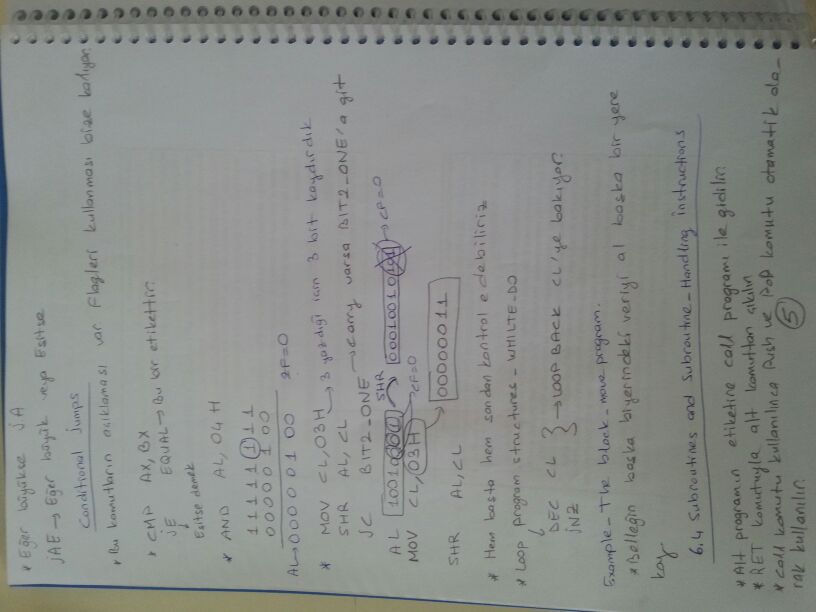 * Eğer büyükse JA
JAE → Eğer büyük veya Eşitse
Conditional Jumps
* Bu komutların açıklaması var flagleri kullanması bize kalıyor.
* CMP AX, BX
JE EQUAL → Bu bir etikettir.
Eşitse demek
* AND AL, 04 H
1 1 1 1 1 1 1 1
0 0 0 0 0 1 0 0
AL → 0 0 0 0 0 1 0 0 ZF=0
* MOV CL, 03H → 3 yazdığı için 3 bit kaydırdık
SHR AL, CL
JC BIT2_ONE → carry varsa BIT2_ONE'a git
SHR
AL 10010 → 00010010 → CF=0
MOV CL, 03H → CF=0
SHR AL, CL 00000011
* Hem başta hem sondan kontrol edebiliriz
* Loop program structures - WHILTE-DO
DEC CL } → LOOP BACK CL'ye bakıyor.
JNZ
Example - The block - move program.
* Belleğin başka biyerindeki veriyi al başka bir yere
koy
6.4 Subroutines and Subroutine - Handling instructions
* Alt programın etiketine call programı ile gidilir.
* RET komutuyla alt komuttan çıkılır
* Call komutu kullanılınca Push ve POP komutu otamatik ola-
rak kullanılır.
5